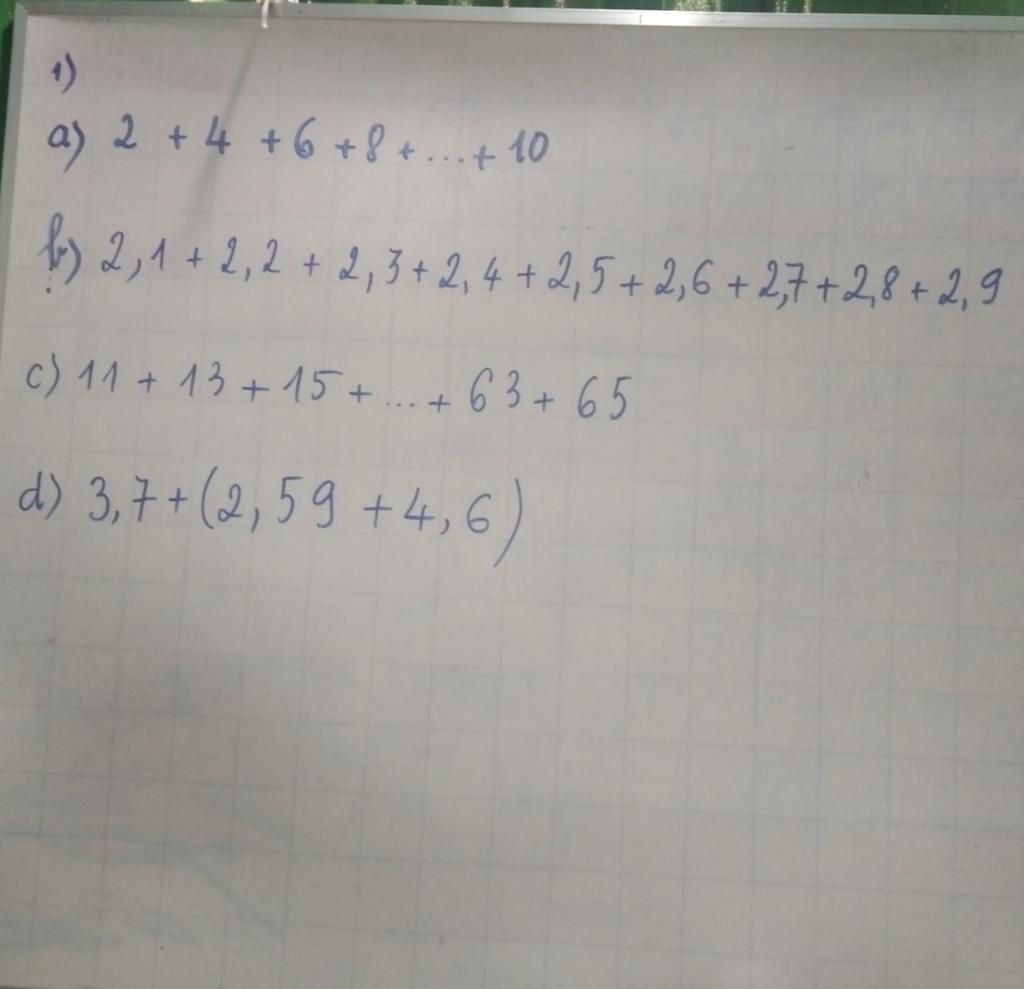 1)
a) 2 + 4 + 6 + 8 + ... + 10
b) 2,1 + 2,2 + 2,3 + 2,4 + 2,5 + 2,6 + 2,7 + 2,8 + 2,9
c) 11 + 13 + 15 + ... + 63 + 65
d) 3,7 + (2,59 + 4,6)